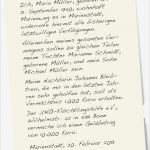 Ich, Maria Müller, geboren am
2. September 1940, wohnhaft
Marienweg 92 in Marienstadt,
widerrufe hiermit alle bisherigen
letztwilligen Verfügungen.
Alleinerben meines gesamten Ver-
mögens sollen zu gleichen Teilen
meine Tochter Marianne Schmidt,
geborene Müller, und mein Sohn
Michael Müller sein.
Meine Nachbarin Johanna Beister-
, die mir in den letzten Jahren
sehr geholfen hat, soll als
Vermächtnis 1.000 Euro erhalten.
Der UNO-Flüchtlingshilfe e.V.,
Wilhelmstr. 42 in 53111 Bonn
vermache ich einen Geldbetrag
von 10.000 Euro.
Marienstadt, 10. Februar 2011